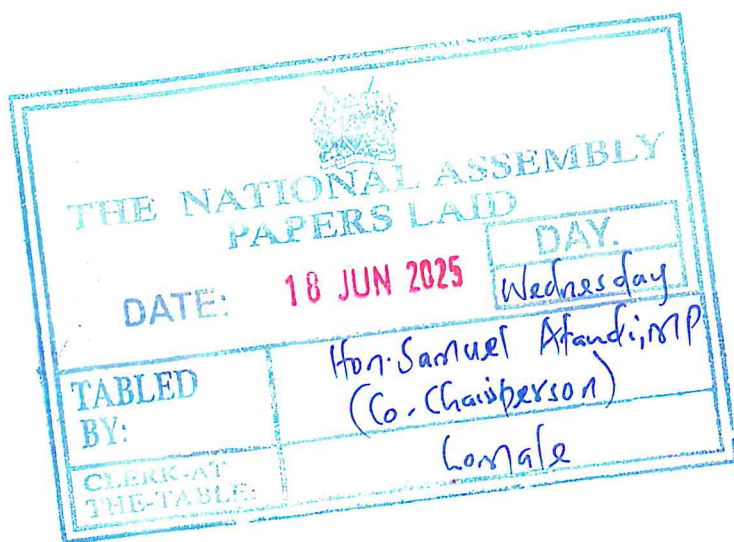 THE NATIONAL ASSEMBLY
PAPERS LAID
DATE: 18 JUN 2025
DAY.
Wednesday
TABLED
BY:
Hon. Samuel Atandi, MP
(Co. Chairperson)
CLERK-AT
THE-TABLE: